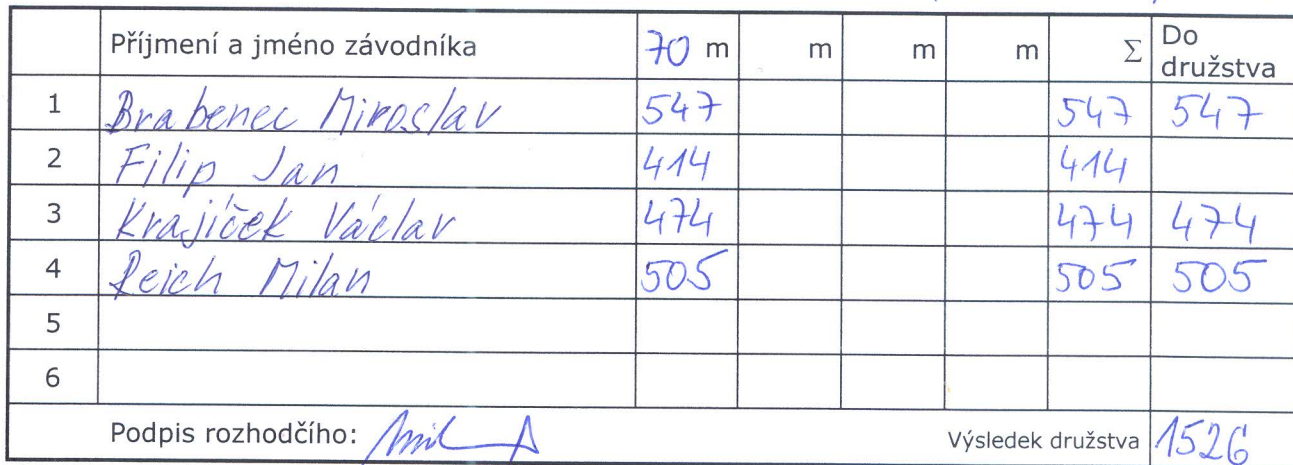 Příjmení a jméno závodníka 70 m m m m Σ Do družstva
1 Brabenec Miroslav 547 547 547
2 Filip Jan 414 414
3 Krajíček Václav 474 474 474
4 Reich Milan 505 505 505
5
6
Podpis rozhodčího: Výsledek družstva 1526